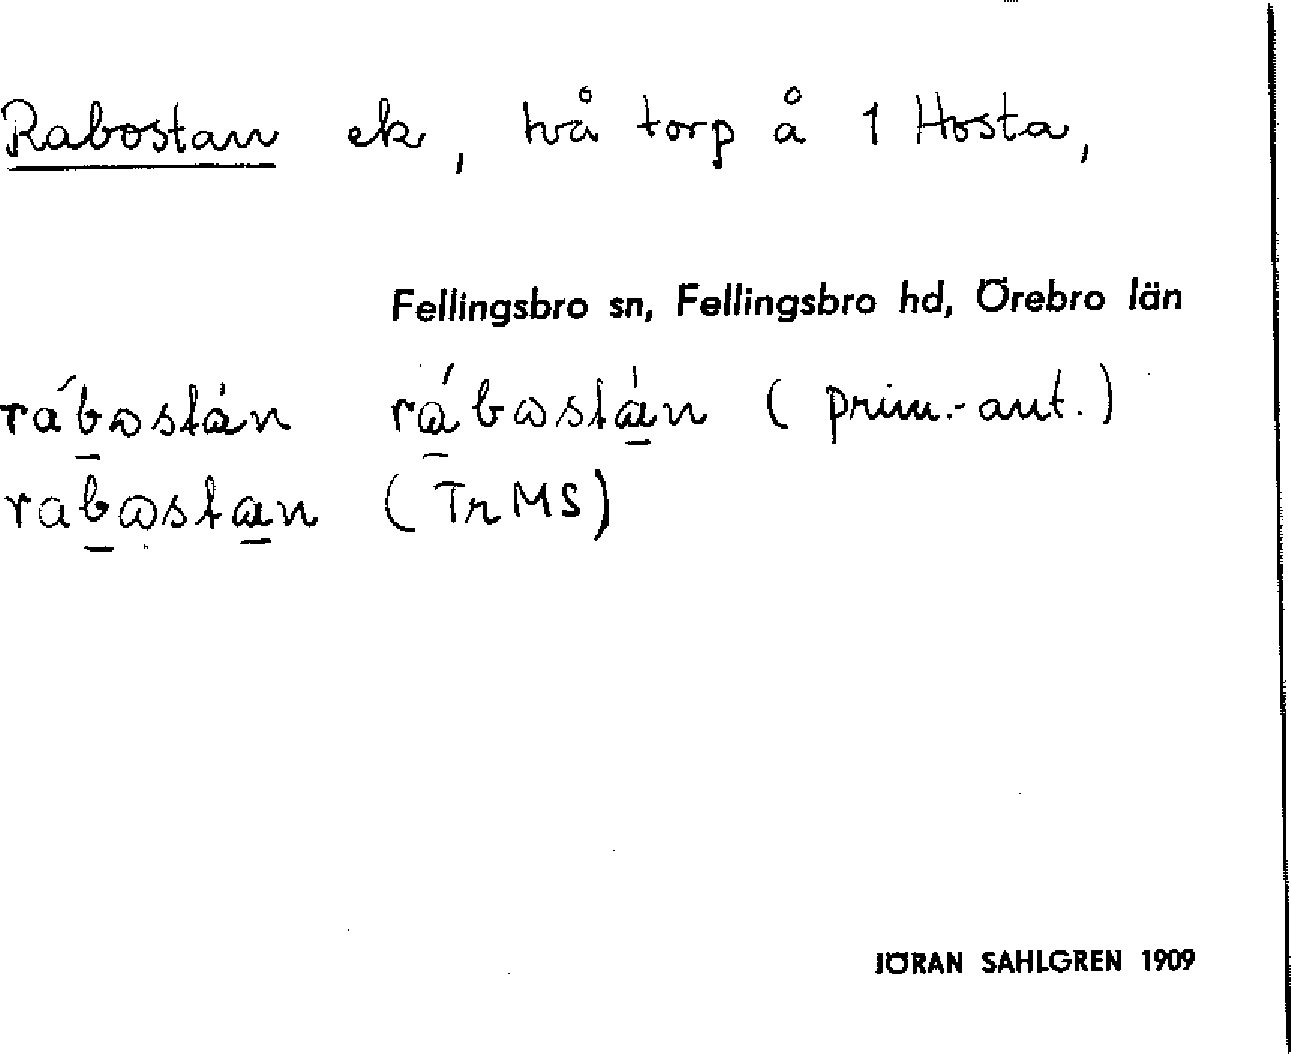 Rabostan ek, två torp å 1 Hosta,
Fellingsbro sn, Fellingsbro hd, Örebro län
rábostán rábostán (prim.-ant.)
rabostan (TrMS)
JÖRAN SAHLGREN 1909